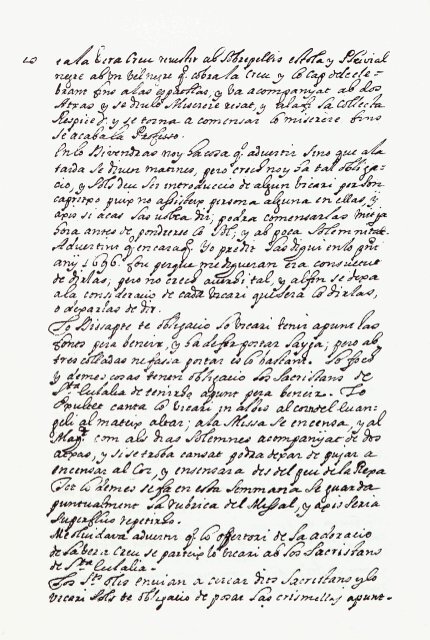 e a la Vera Creu revestit ab Sobrepellis estola y Pluvial
negre ab un vel negre q. cobra la Creu y lo Cap del cele-
brant fins a las espatllas, y va acompanyat ab dos
Atxas y se diu lo Miserere resat, y la Collecta
Respice &. y se torna a comensar lo miserere fins
se acaba la Profeso.
En lo Divendras noy ha cosa q. advertir sino que a la
tarda se diuen matines, pero crech noy ha tal obliga-
cio, y sols deu ser introduccio de algun vicari per son
capritxo puix no assisteix persona alguna en ellas, y
axis si acas las volen dir, podra comensarlas mitja
hora antes de pondrerse lo Sol, y ab poca Solemnitat.
Advertint q. encaraq. Yo predit las digui en lo prt.
any 1696. fou perque me digueran era consuetut
de dirlas, pero no crech auerhi tal, y al fin se dexa
a la consideracio de cada vicari qui sera lo dirlas,
o dexarlas de dir.
Lo Dissapte te obligacio lo vicari tenir apunt las
fonts pera beneir, y ha de fer portar laygua; pero ab
tres colladas ne fassa portar es lo bastant. Lo foch
y demes cosas tenen obligacio los Sacristans de
Sta. Eulalia de tenirho apunt pera beneir. Lo
Exultet canta lo Vicari in albis al corn del Euan-
geli al mateix altar; a la Missa se encensa, y al
Magt. com als dias Solemnes acompanyat de dos
atxas, y si se troba cansat podra dexar de pujar a
encensar al Cor, y encensara des del peu de la
Tot lo demes se fa en esta Semmana Se guarda
puntualment la Rubrica del Missal, y axis seria
superfluo repetirho.
Me olvidava advertir q. lo offertori de la adoracio
de la Vera Creu se parteix lo Vicari ab los Sacristans
de Sta. Eulalia.
Los Sts. olis envian a cercar dits Sacristans y lo
vicari sols te obligacio de posar las crismellas apunt.